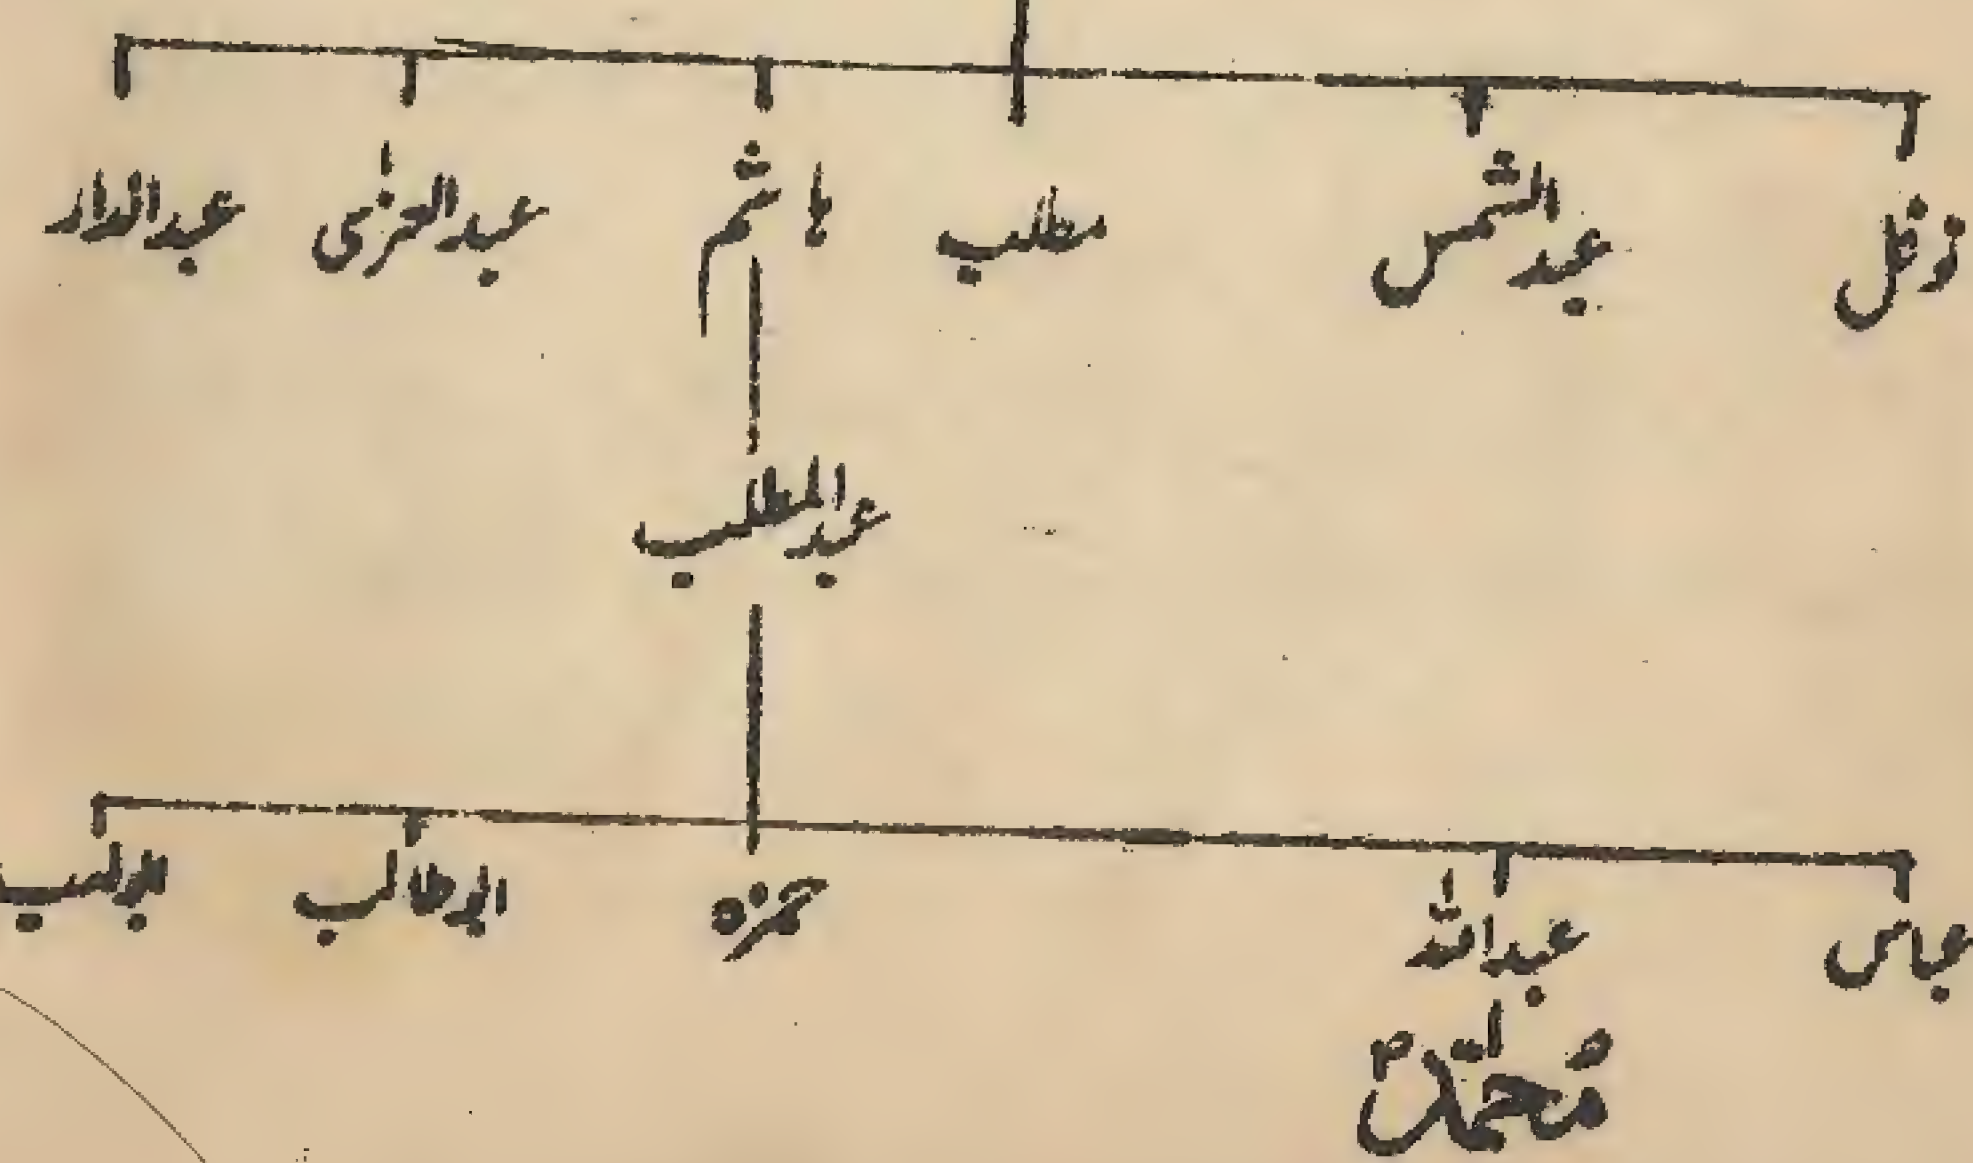 نوفل عبد الشمس مطلب ہاشم عبد العزیٰ عبد الدار
عبد المطلب
عباس عبد اللہ حمزہ ابو طالب ابو لہب
مُحَمَّدؐ